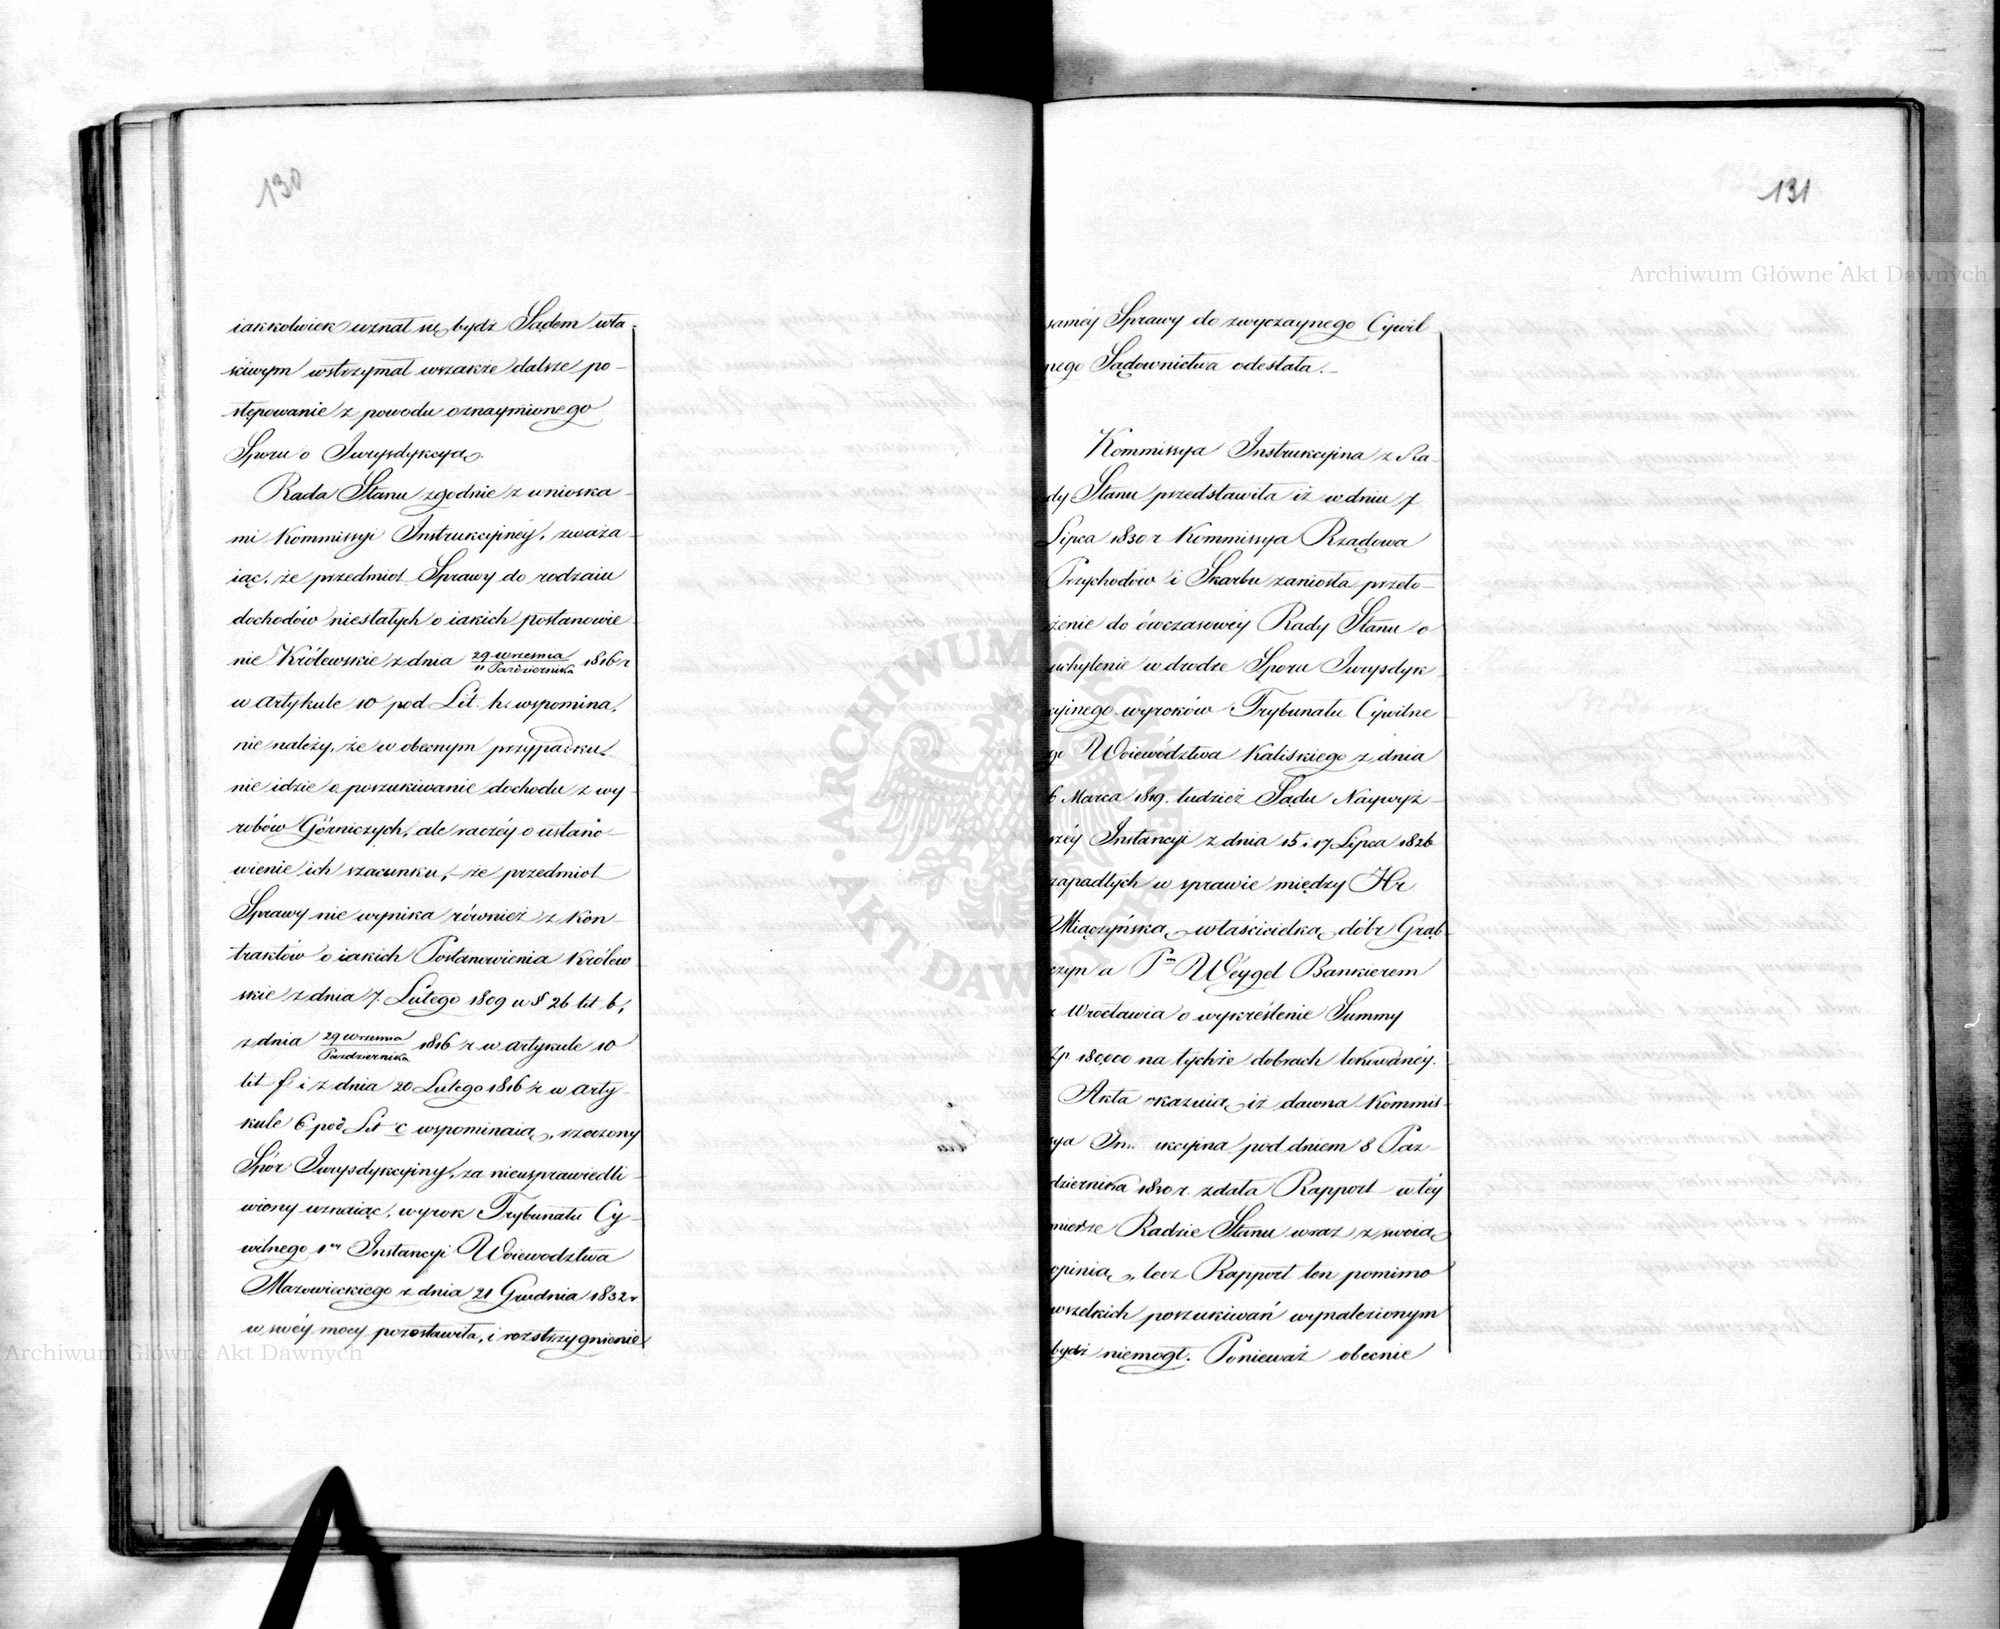 130
iakkolwiek uznał się bydź Sądem wła-
ściwym wstrzymał wszakże dalsze po-
stępowanie z powodu oznaymionego
Sporu o Jurysdykcyą.
Rada Stanu zgodnie z wnioska-
mi Kommissyi Instrukcyinéy, zważa-
iąc, że przedmiot Sprawy do rodzaiu
dochodów niestałych o iakich postanowie-
nie Królewskie z dnia 29 Września / 11 Października 1816 r
w artykule 10 pod Lit. h. wspomina,
nie należy, że w obecnym przypadku
nie idzie o poszukiwanie dochodu z wy-
robów Górniczych, ale raczéy o ustano-
wienie ich szacunku, że przedmiot
Sprawy nie wynika również z Kon-
traktów o iakich Postanowienia Królew
skie z dnia 7. Lutego 1809 w § 26 lit b,
z dnia 29 Września / Października 1816 r w artykule 10
lit f i z dnia 20 Lutego 1816 r w arty-
kule 6 pod Lit c wspominaią, rzeczony
Spór Jurysdykcyiny, za nieusprawiedli-
wiony uznaiąc, wyrok Trybunału Cy-
wilnego 1ey Instancyi Woiewodztwa
Mazowieckiego z dnia 21 Grudnia 1832 r
w swéy mocy pozostawiła, i rozstrzygnienie
131
saméy Sprawy do zwyczaynego Cywil
nego Sądownictwa odesłała.
Kommissya Instrukcyina z Ra-
dy Stanu przedstawiła iż w dniu 7
Lipca 1830 r Kommissya Rządowa
Przychodów i Skarbu zaniosła przeło-
żenie do ówczasowéy Rady Stanu o
uchylenie w drodze Sporu Jurysdyk
cyjnego wyroków Trybunału Cywilne
go Woiewództwa Kaliskiego z dnia
6 Marca 1819. tudzież Sądu Naywyż-
széy Instancyi z dnia 15 i 17 Lipca 1826
zapadłych w sprawie między Hr
Miączyńską właścicielką dóbr Grab-
czyn a Pm Weygel Bankierem
z Wrocławia o wykreślenie Summy
Zp 180,000 na tychże dobrach lokowanéy.
Akta okazuią iż dawna Kommis-
sya In ukcyina pod dniem 8 Paz-
dziernika 1830 r. zdała Rapport w téy
mierze Radzie Stanu wraz z swoią
opinią, lecz Rapport ten pomimo
wszelkich poszukiwań wynalezionym
bydź niemógł. Ponieważ obecnie
Archiwum Główne Akt Dawnych
Archiwum Główne Akt Dawnych
ARCHIWUM GŁÓWNE AKT DAWNYCH